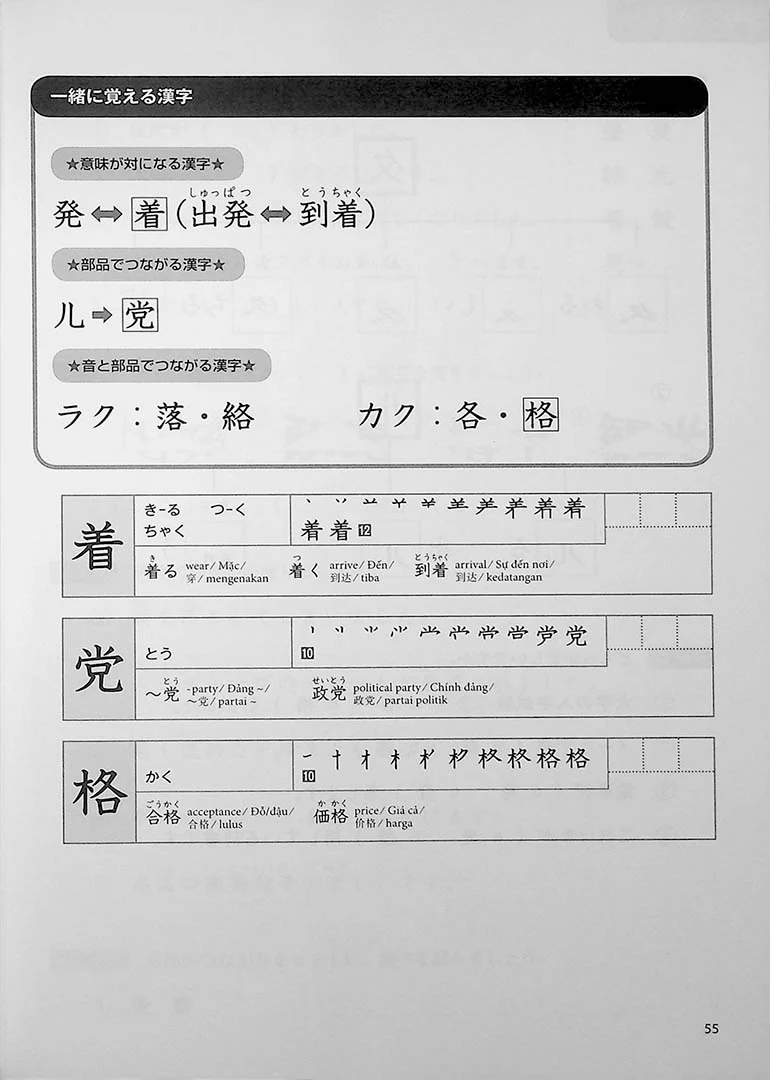 一緒に覚える漢字
★意味が対になる漢字★
しゅっぱつ とうちゃく
発⇔着(出発⇔到着)
★部品でつながる漢字★
儿➡党
★音と部品でつながる漢字★
ラク：落・絡 カク：各・格
着
き-る つ-く
ちゃく
着着12
き
着る wear/ Mặc/
穿/ mengenakan
つ
着く arrive/ Đến/
到达/ tiba
とうちゃく
到着 arrival/ Sự đến nơi/
到达/ kedatangan
党
とう
党
10
とう
～党 -party/ Đảng ~/
～党/ partai ~
せいとう
政党 political party/ Chính đảng/
政党/ partai politik
格
かく
格格
10
ごうかく
合格 acceptance/ Đỗ/đậu/
合格/ lulus
かかく
価格 price/ Giá cả/
价格/ harga
55